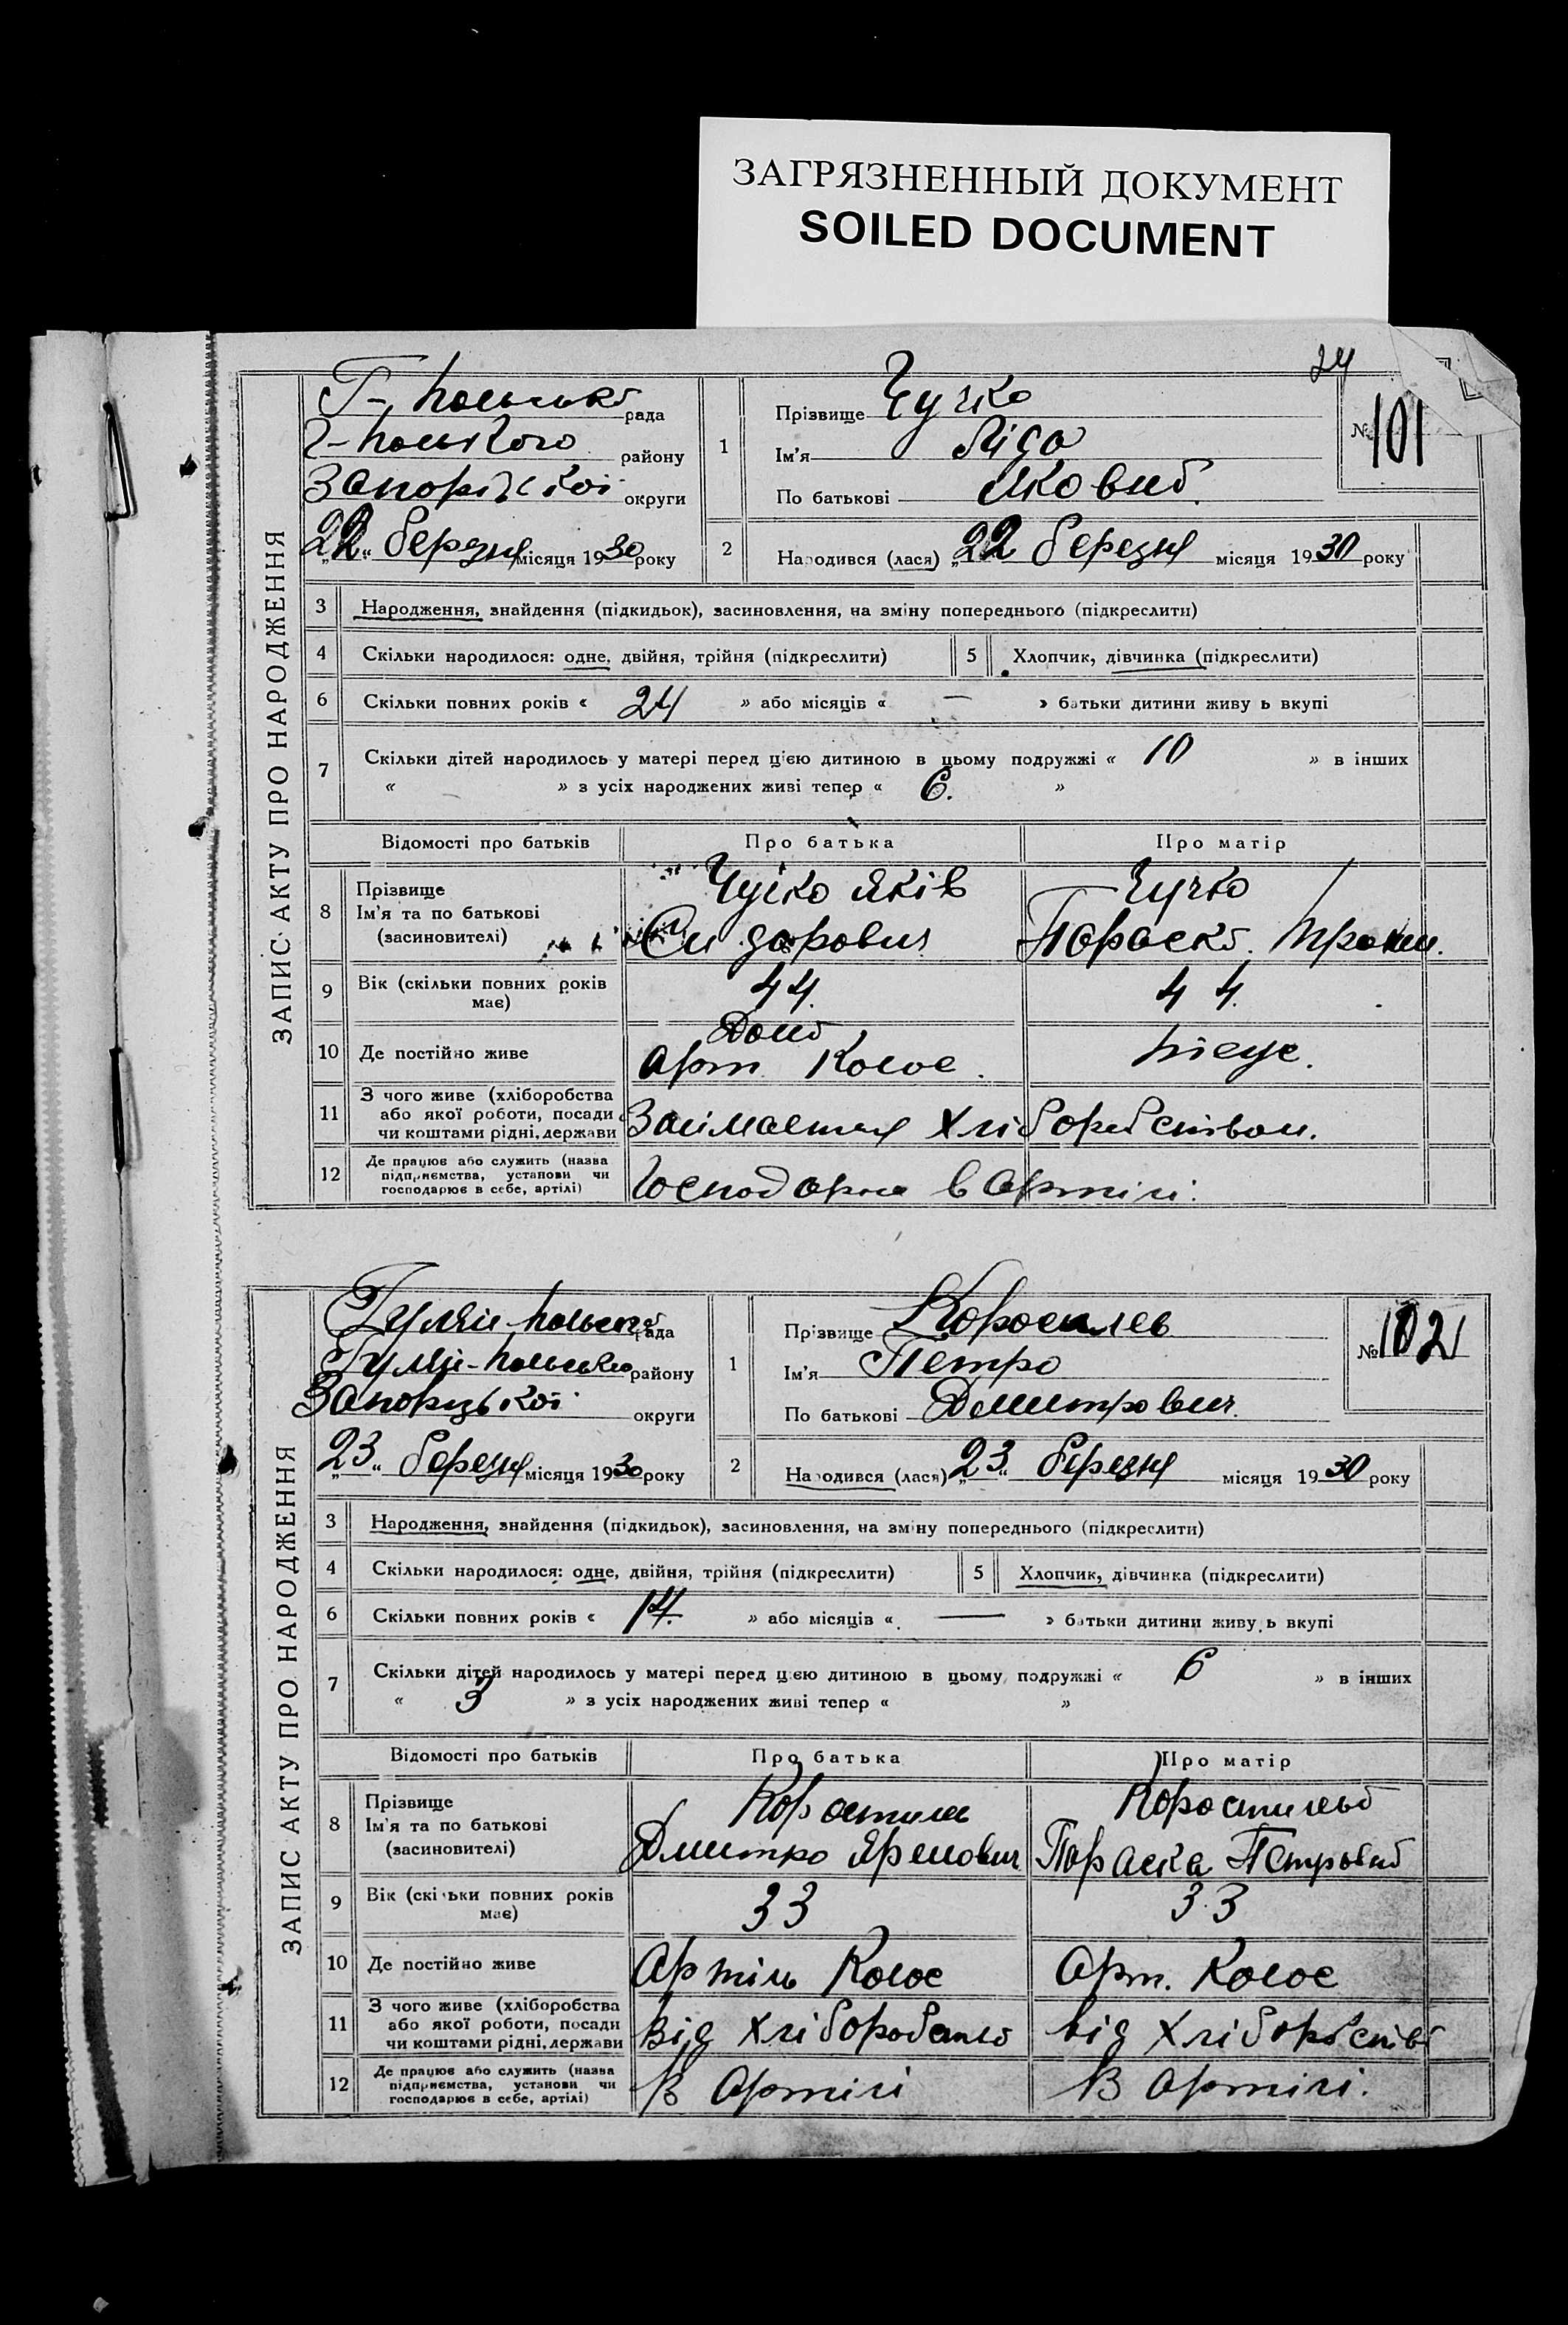 ЗАГРЯЗНЕННЫЙ ДОКУМЕНТ
SOILED DOCUMENT
24
ЗАПИС АКТУ ПРО НАРОДЖЕННЯ
Г-Польська рада
Г-Польского району
Запорізької округи
„22“ березня місяця 1930 року
1
Прізвище Чучко
Ім'я Ліда
По батькові Яковив.
№ 101
2
Народився (лася) „22 березня місяця 1930 року
3 Народження, знайдення (підкидьок), засиновлення, на зміну попереднього (підкреслити)
4 Скільки народилося: одне, двійня, трійня (підкреслити) 5 Хлопчик, дівчинка (підкреслити)
6 Скільки повних років « 24 » або місяців « — » батьки дитини живу ь вкупі
7 Скільки дітей народилось у матері перед цією дитиною в цьому подружжі « 10 » в інших
« » з усіх народжених живі тепер « 6. »
Відомості про батьків Про батька Про матір
8 Прізвище
Ім'я та по батькові
(засиновителі)
Чучко Яків
Сидорович
Чучко
Параска
9 Вік (скільки повних років
має)
44. 44.
10 Де постійно живе
Арт. Колос.
11 З чого живе (хліборобства
або якої роботи, посади
чи коштами рідні, держави
Займається хліборобством.
12 Де працює або служить (назва
підприємства, установи чи
господарює в себе, артілі)
в Артілі.
ЗАПИС АКТУ ПРО НАРОДЖЕННЯ
Гуляй-Польська рада
Гуляй-Польсько району
Запорізької округи
„23“ березня місяця 1930 року
1
Прізвище
Ім'я Петро
По батькові Дмитрович.
№ 102
2
Народився (лася) „23“ березня місяця 1930 року
3 Народження, знайдення (підкидьок), засиновлення, на зміну попереднього (підкреслити)
4 Скільки народилося: одне, двійня, трійня (підкреслити) 5 Хлопчик, дівчинка (підкреслити)
6 Скільки повних років « 14. » або місяців « — » батьки дитини живу ь вкупі
7 Скільки дітей народилось у матері перед цією дитиною в цьому подружжі « 6 » в інших
« 3 » з усіх народжених живі тепер « »
Відомості про батьків Про батька Про матір
8 Прізвище
Ім'я та по батькові
(засиновителі)
Коростиль
Дмитро Яремович
Параска Петровив
9 Вік (скільки повних років
має)
33 33
10 Де постійно живе
Артіль Колос Арт. Колос
11 З чого живе (хліборобства
або якої роботи, посади
чи коштами рідні, держави
Від хліборобства від хліборобства
12 Де працює або служить (назва
підприємства, установи чи
господарює в себе, артілі)
В Артілі В Артілі.